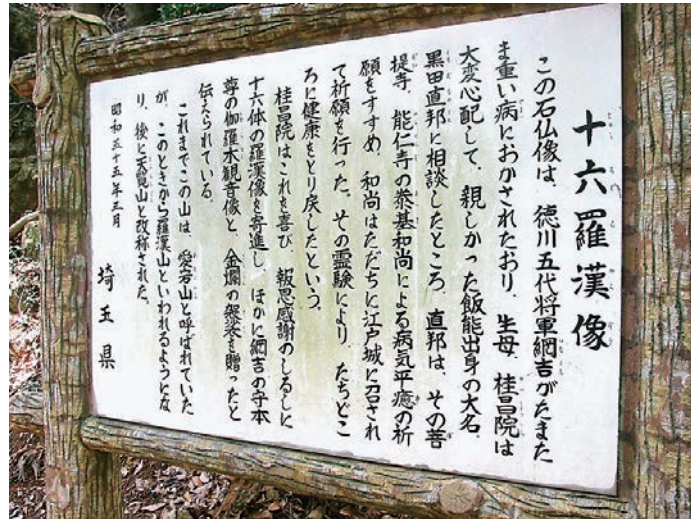 十六羅漢像
この石仏像は、徳川五代将軍綱吉がたまた
ま重い病におかされたおり、生母、桂昌院は
大変心配して、親しかった飯能出身の大名、
黒田直邦に相談したところ、直邦は、その菩
提寺、能仁寺の泰基和尚による病気平癒の祈
願をすすめ、和尚はただちに江戸城に召され
て祈願を行った。その霊験により、たちどこ
ろに健康をとり戻したという。
桂昌院はこれを喜び、報恩感謝のしるしに
十六体の羅漢像を寄進し、ほかに綱吉の守本
尊の伽羅木観音像と、金襴の袈裟を贈ったと
伝えられている。
これまでこの山は、愛宕山と呼ばれていた
が、このときから羅漢山といわれるようにな
り、後に天覧山と改称された。
昭和五十五年三月
埼玉県